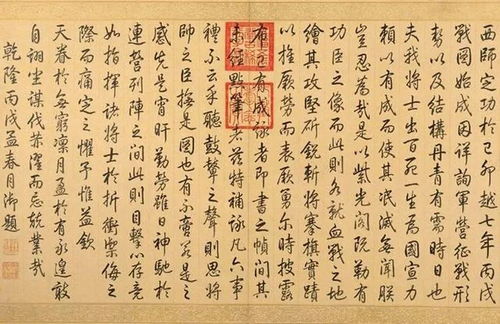 西師定功於己卯越七年丙戌
戰圖始成因詳詢軍營征戰形
勢以及結構丹青有需時日也
夫我將士出百死一生為國宣力
賴以有成而使其泯滅無聞朕
豈忍為哉是以紫光閣既勒有
功臣之像而此則各就血戰之地
繪其攻堅斫銳斬將搴旗實蹟
以旌厥勞而表厥勇爾時披露
布已有成詠者即書之幀間其
未經點筆者茲特補詠凡六事
禮不云乎聽鼓鼙之聲則思將
帥之臣撫是圖也有不啻若是之
感先是宵旰勤勞雖日神馳於
連營列陣之間此則目擊心存竟
如指揮諸將士於折衝禦侮之
際而痛定之懼予惟益欽
天眷於無窮凛月盈於有永遑敢
自詡坐謀伐恭濯而忘兢業哉
乾隆丙戌孟春月御題